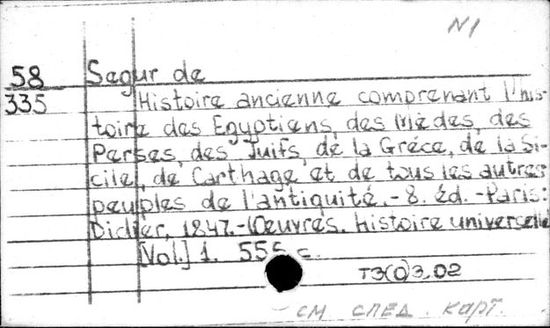 N1
58 Segur de
335 Histoire ancienne comprenant l'his-
toire des Egyptiens, des Mèdes, des
Perses, des Juifs, de la Gréce, de la Si-
cile, de Carthage et de tous les autres
peuples de l'antiquité. - 8. éd. - Paris:
Didier, 1847. - (Œuvres. Histoire universelle
[Vol.] 1. 555 c.
T3(0)3,02
см след. карт.